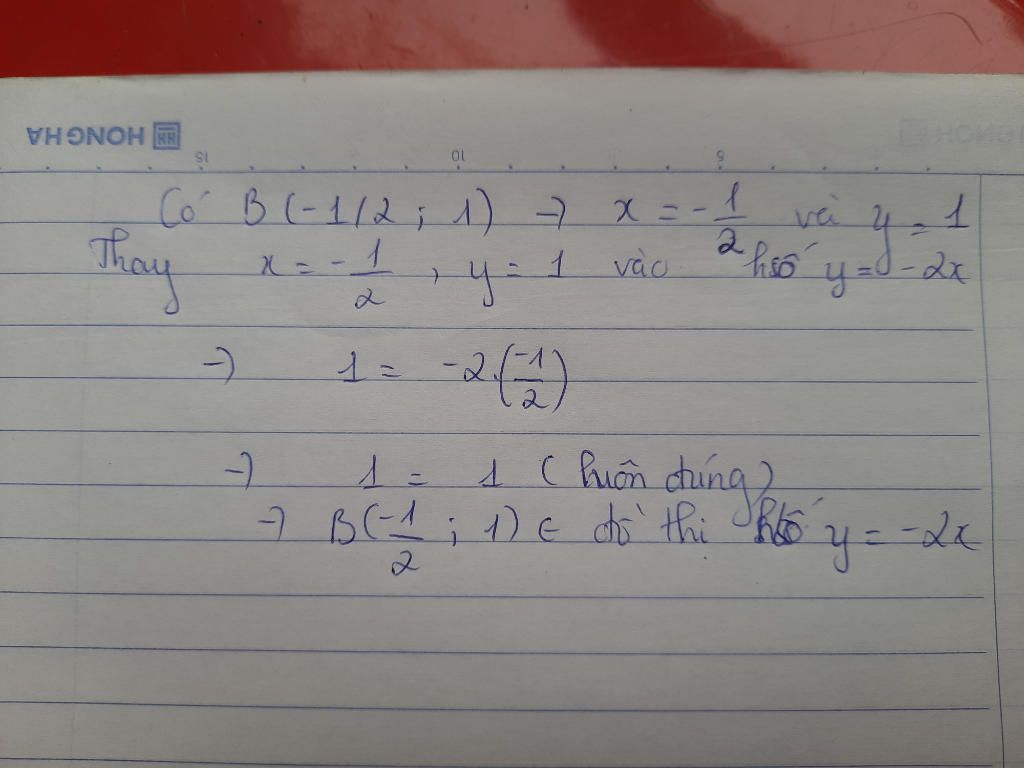 HONG HA
HONG
15 10 5
Có B(-1/2 ; 1) → x = -1/2 và y = 1
Thay x = -1/2 , y = 1 vào hsố y = -2x
→ 1 = -2.(-1/2)
→ 1 = 1 (luôn đúng)
→ B(-1/2 ; 1) ∈ đồ thi hsố y = -2x